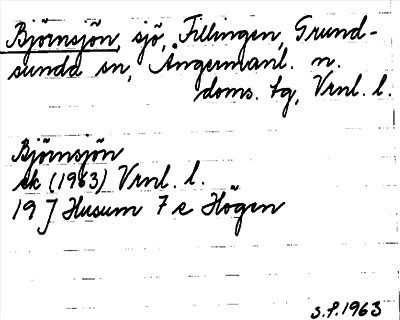 Björnsjön, sjö, Fillingen, Grund-
sunda sn, Ångermanl. n.
doms. tg, Vrnl. l.
Björnsjön
ek (1963) Vrnl. l.
19 J Husum 7 e Högen
S.F. 1963